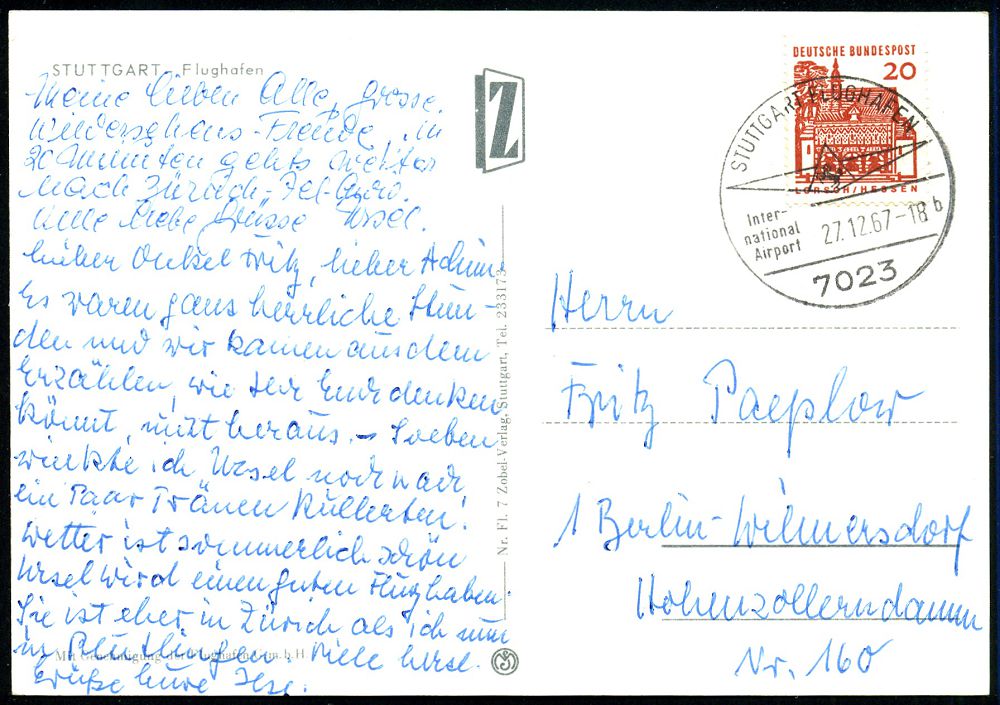 STUTTGART - Flughafen
Meine lieben Alle, grosse
Wiedersehens-Freude, in
20 Minuten gehts weiter
nach Zürich - Tel-Aviv.
Alle liebe Grüsse Ursel.
Lieber Onkel Fritz, lieber Achim
Es waren ganz herrliche Stun-
den und wir kamen aus dem
Erzählen, wie Ihr Euch denken
könnt, nicht heraus. - Soeben
winkte ich Ursel noch nach,
ein Paar Tränen kullerten!
Wetter ist sommerlich schön
Ursel wird einen guten Flug haben.
Sie ist eher in Zürich als ich nun
in Reutlingen. Viele herzl.
Grüße Eure Ilse.
Mit Genehmigung der Flughafen G.m.b.H.
Z
Nr. Fl. 7 Zobel-Verlag, Stuttgart, Tel. 233173
DEUTSCHE BUNDESPOST
20
LORSCH/HESSEN
STUTTGART FLUGHAFEN
Inter-
national
Airport
27.12.67-18 b
7023
Herrn
Fritz Paeplow
1 Berlin-Wilmersdorf
Hohenzollerndamm
Nr. 160